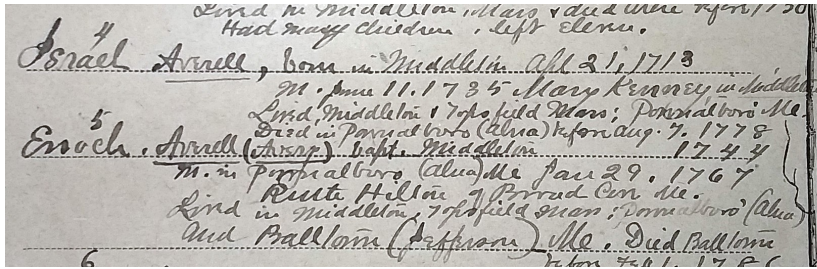 Lived in Middleton, Mass & died there before 1750
Had many children, left eleven.
4
Israel Averell, born in Middleton Apl 21, 1713
m. June 11. 1735 Mary Kenney in Middleton
Lived, Middleton & Topsfield Mass; Pownalboro Me.
Died in Pownalboro (Alna) before Aug. 7. 1778
5
Enoch. Averell (Avery) bapt. Middleton 1744
m. in Pownalboro (Alna) Me Jan 29. 1767
Ruth Hilton of Broad Cove Me.
Lived in Middleton, Topsfield Mass; Pownalboro (Alna)
and Balltown (Jefferson) Me. Died Balltown
6
before Feb 1. 1786